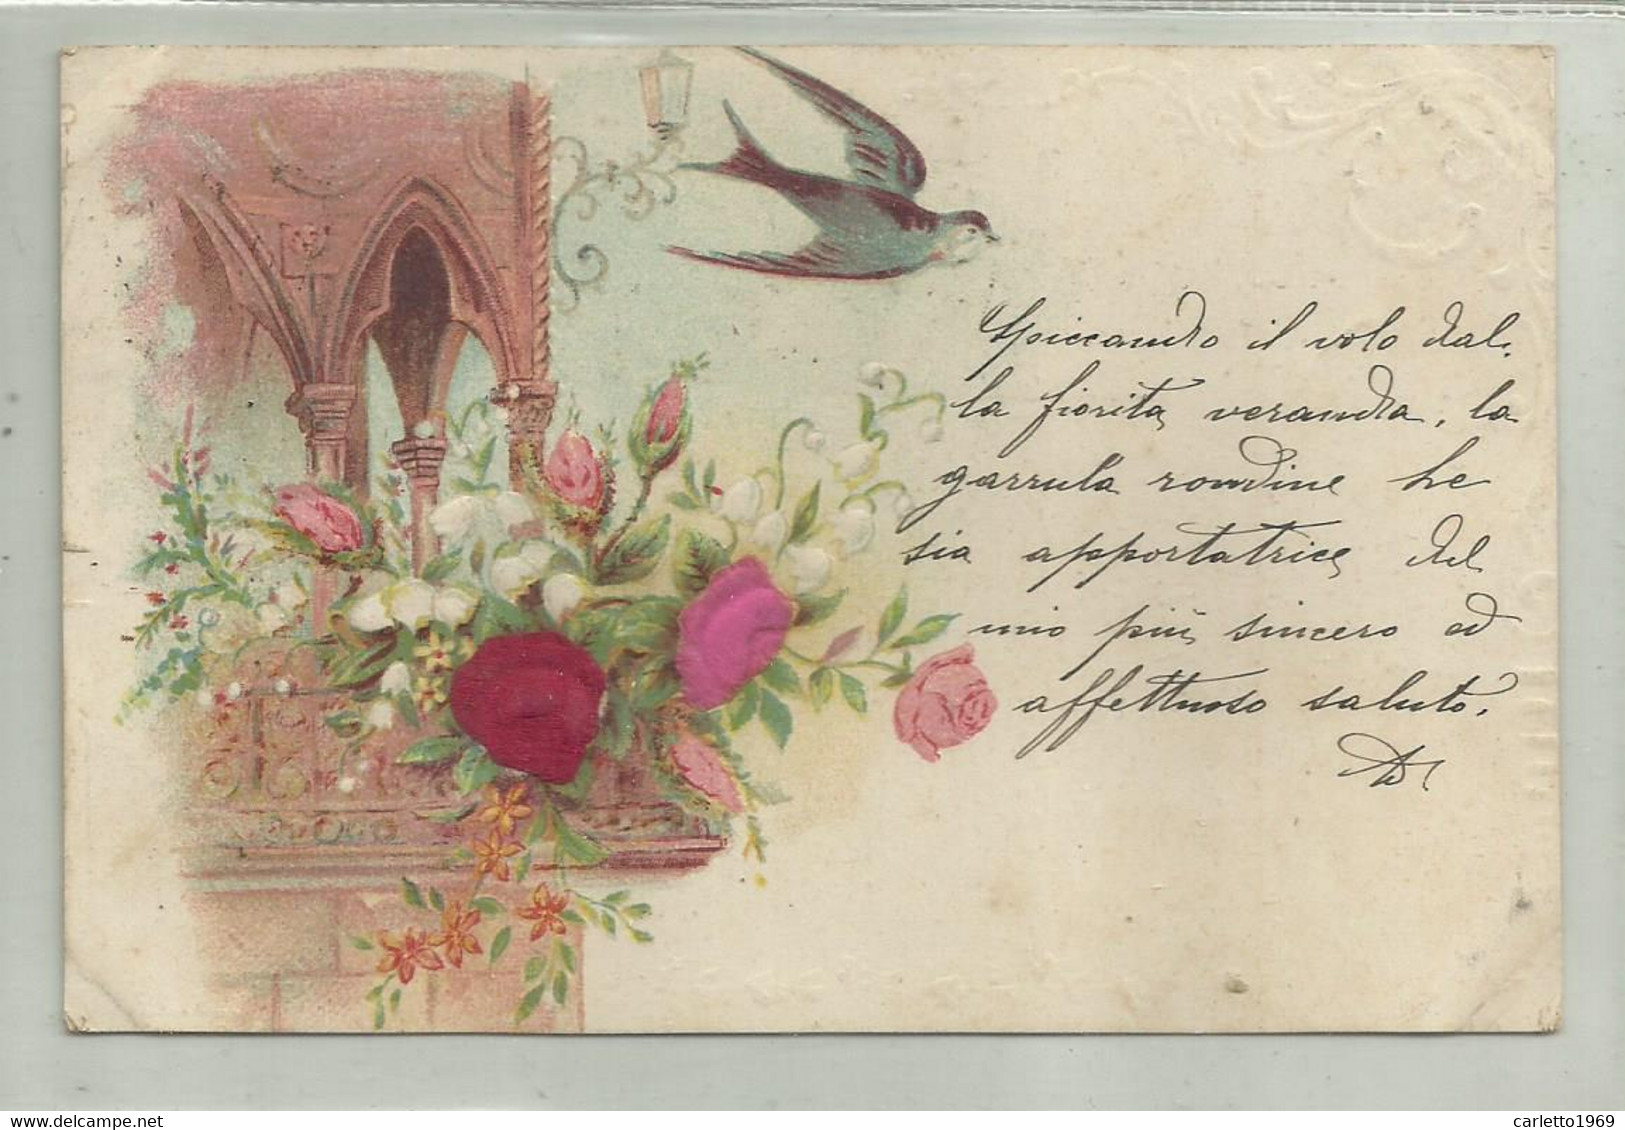 Spiccando il volo dal-
la fiorita veranda, la
garrula rondine he
sia apportatrice del
mio più sincero ed
affettuoso saluto.
delcampe.net
carletto1969